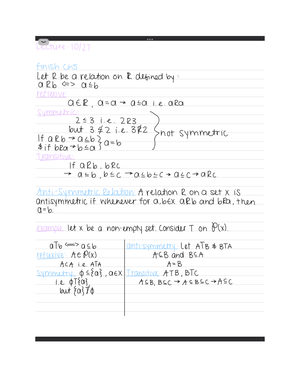 Lecture 10/17
Finish Ch5
Let R be a relation on ℝ defined by:
aRb <=> a≤b
Reflexive:
a∈ℝ, a=a → a≤a i.e. aRa
Symmetric:
2≤3 i.e. 2R3
but 3≰2 i.e. 3R̸2
not symmetric
If aRb → a≤b
& if bRa → b≤a
a=b
Transitive:
If aRb, bRc
→ a≤b, b≤c → a≤b≤c → a≤c → aRc
Anti-Symmetric Relation: A relation R on a set X is
antisymmetric if whenever for a,b∈X aRb and bRa, then
a=b.
Example: Let X be a non-empty set. Consider T on P(X).
aTb <=> a⊆b
Reflexive: A∈P(X)
A⊆A i.e. ATA
Symmetry: ϕ⊆{a}, a∈X
i.e. ϕT{a}
but {a}T̸ϕ
antisymmetry: Let ATB & BTA
A⊆B and B⊆A
A=B
Transitive: ATB, BTC
A⊆B, B⊆C → A⊆B⊆C → A⊆C